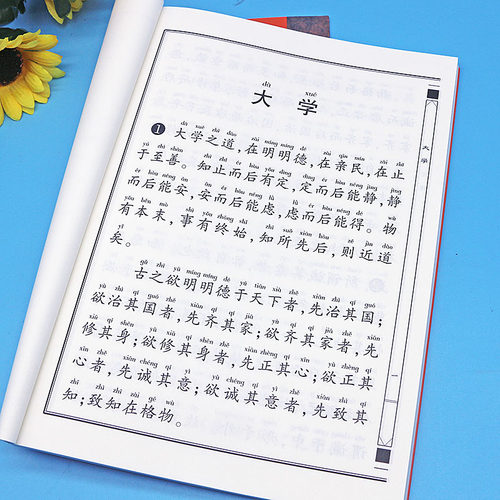 dà xué
大学
❶大学之道,在明明德,在亲民,在止
于至善。知止而后有定,定而后能静,静
而后能安,安而后能虑,虑而后能得。物
有本末,事有终始,知所先后,则近道
矣。
古之欲明明德于天下者,先治其国;
欲治其国者,先齐其家;欲齐其家者,先
修其身;欲修其身者,先正其心;欲正其
心者,先诚其意;欲诚其意者,先致其
知;致知在格物。
大学
一